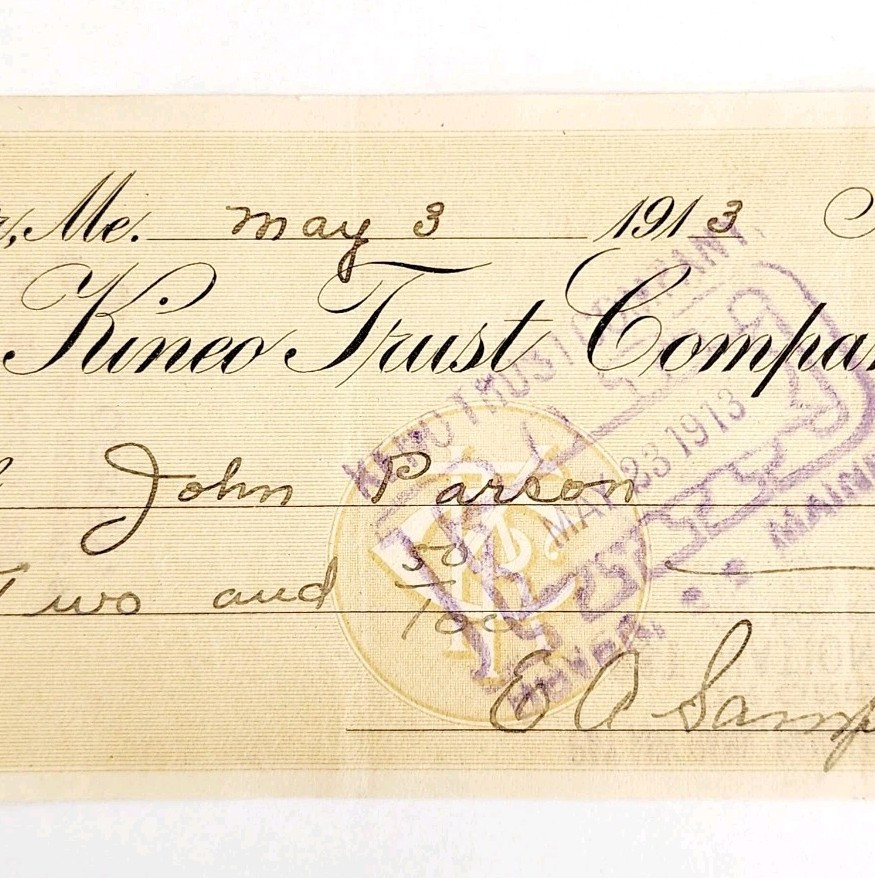 Me. May 3 1913
Kineo Trust Company
John Parson
Two and 50/100
E A Samp
KINEO TRUST COMPANY,
MAY 23 1913
MAINE